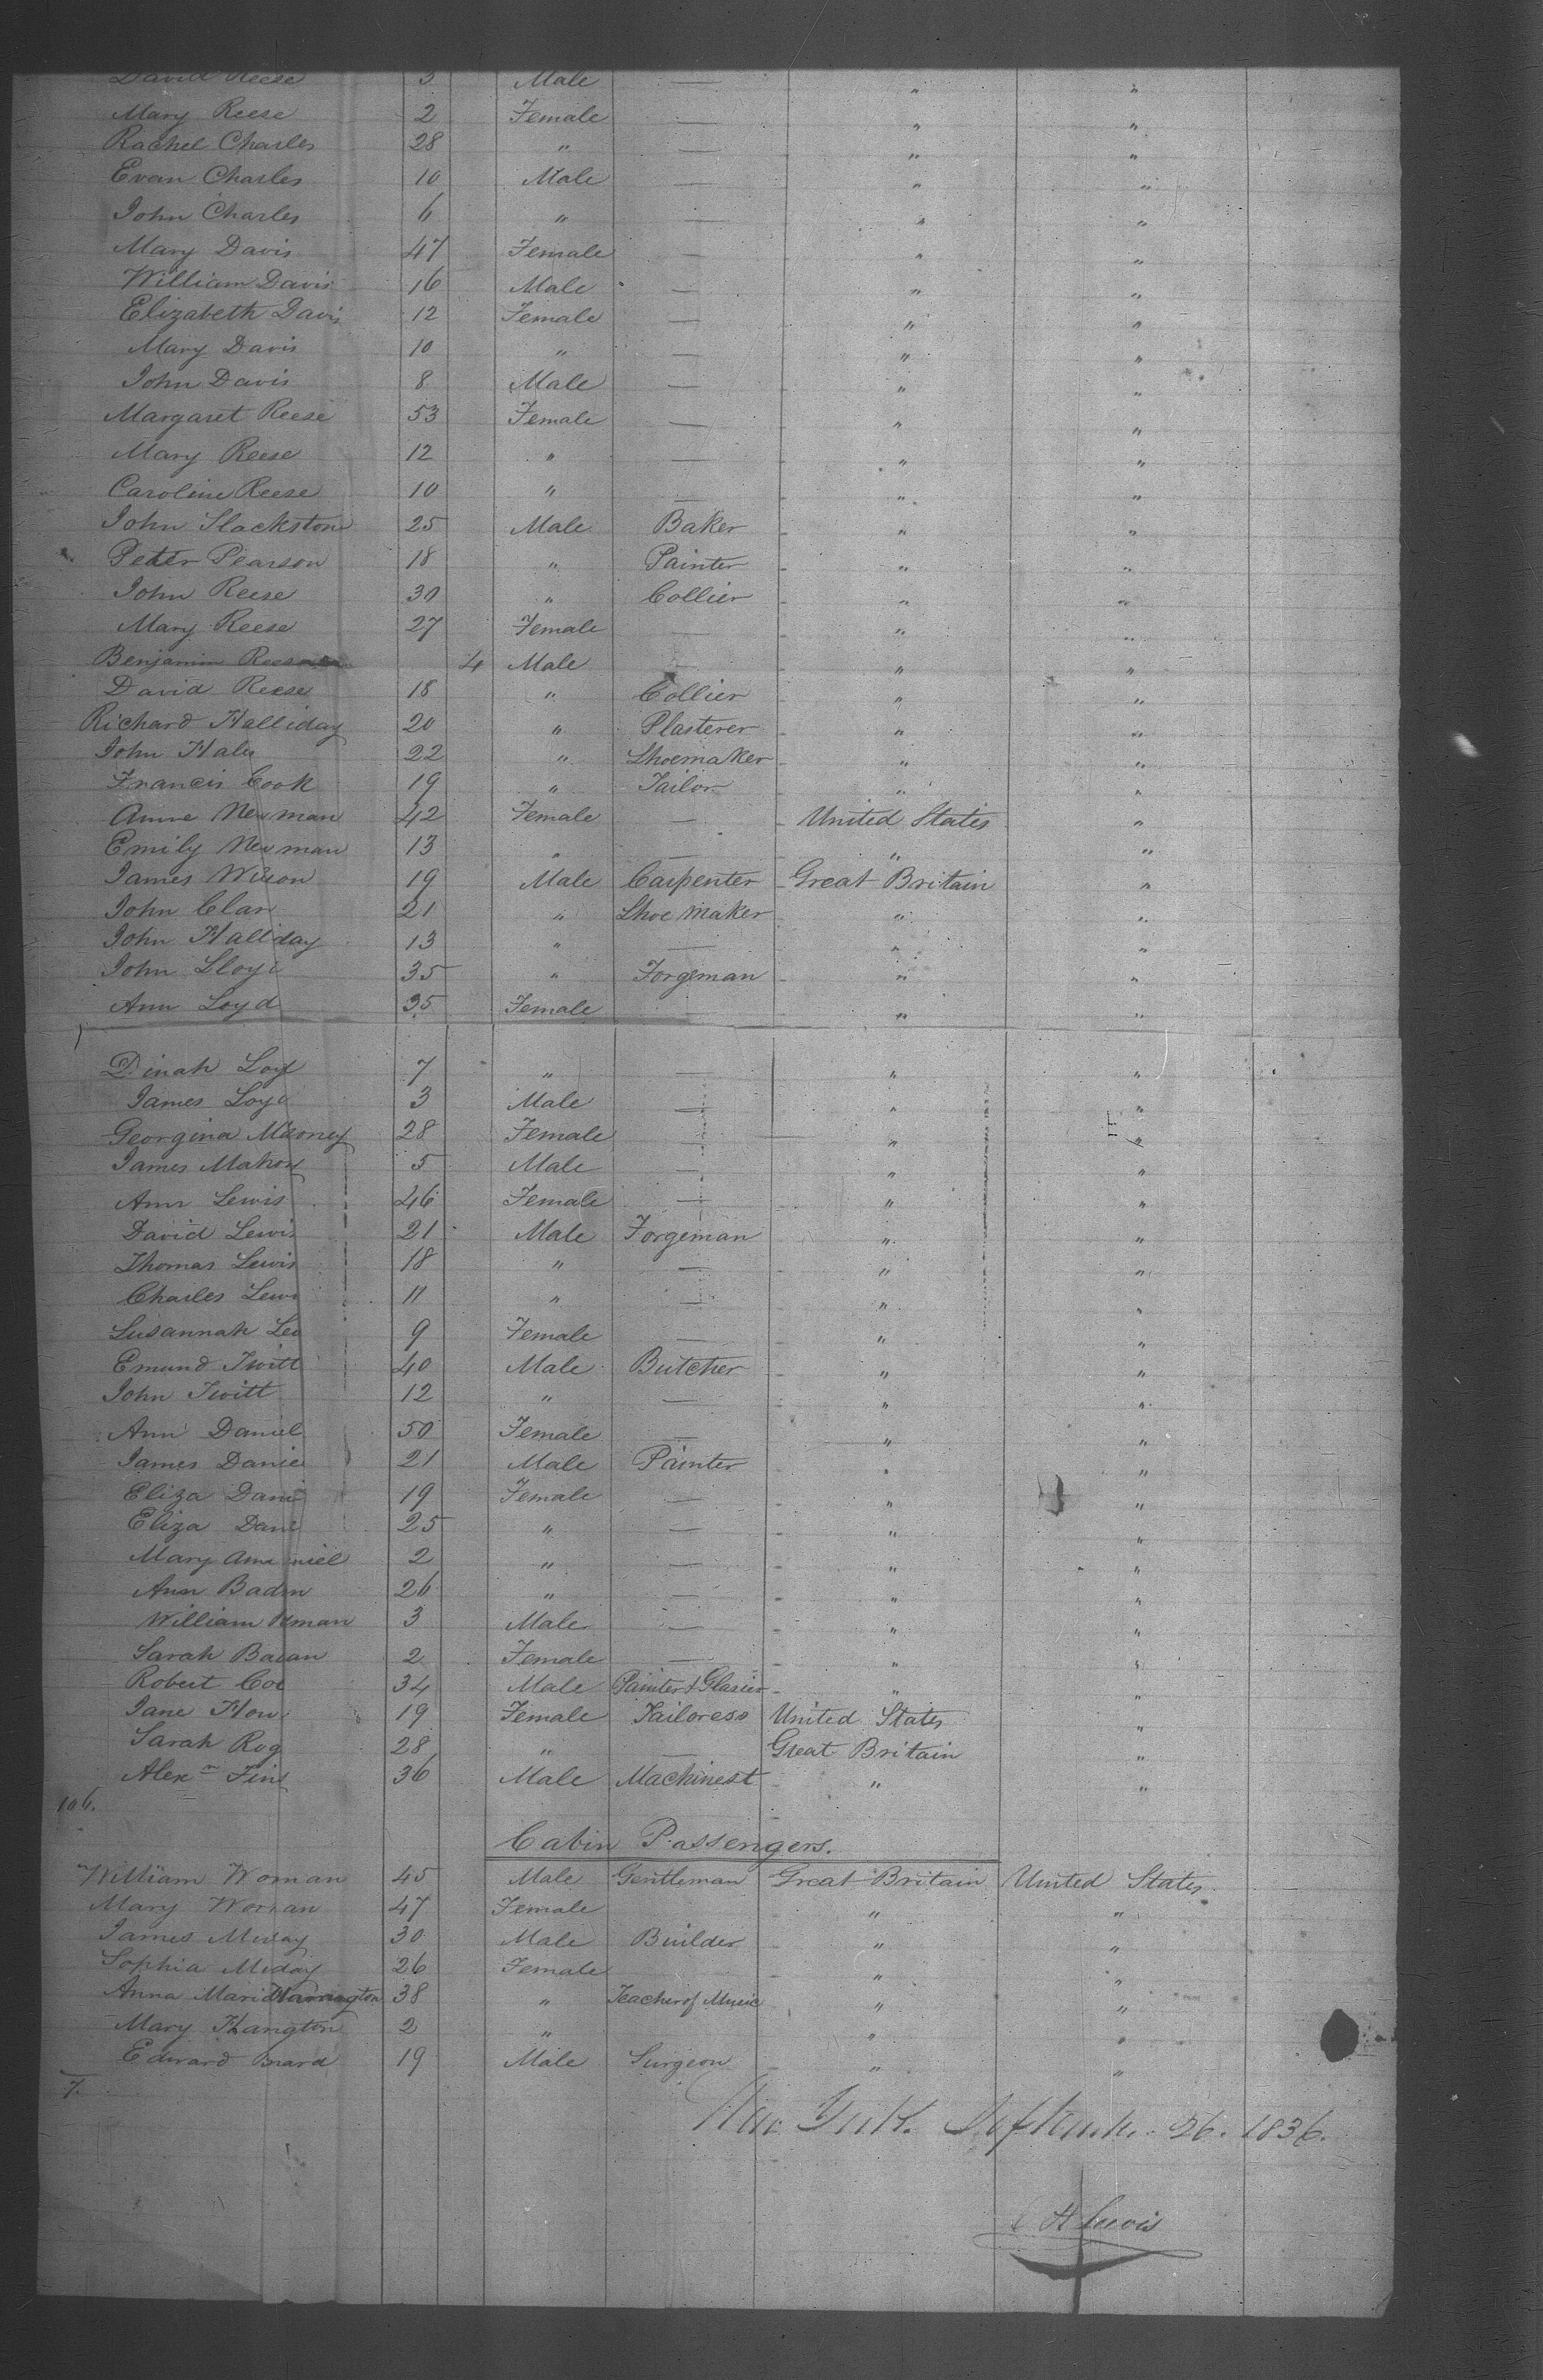 David Reese 3 Male — " "
Mary Reese 2 Female — " "
Rachel Charles 28 " — " "
Evan Charles 10 Male — " "
John Charles 6 " — " "
Mary Davis 47 Female — " "
William Davis 16 Male — " "
Elizabeth Davis 12 Female — " "
Mary Davis 10 " — " "
John Davis 8 Male — " "
Margaret Reese 53 Female — " "
Mary Reese 12 " — " "
Caroline Reese 10 " — " "
John Slackstone 25 Male Baker " "
Peter Pearson 18 " Painter " "
John Reese 30 " Collier " "
Mary Reese 27 Female — " "
Benjamin Reese 4 Male — " "
David Reese 18 " Collier " "
Richard Halliday 20 " Plasterer " "
John Hales 22 " Shoemaker " "
Francis Cook 19 " Tailor " "
Anne Newman 42 Female — United States "
Emily Newman 13 " — " "
James Wilson 19 Male Carpenter Great Britain "
John Clar 21 " Shoe Maker " "
John Halliday 13 " — " "
John Lloyd 35 " Forgeman " "
Ann Loyd 35 Female — " "
Dinah Loy 7 " — " "
James Loyd 3 Male — " "
Georgina 28 Female — " "
James Mahon 5 Male — " "
Ann Lewis 46 Female — " "
David Lewis 21 Male Forgeman " "
Thomas Lewis 18 " — " "
Charles Lewi 11 " — " "
Susannah Le 9 Female — " "
Emund Twitt 40 Male Butcher " "
John Twitt 12 " — " "
Ann Daniel 50 Female — " "
James Danie 21 Male Painter " "
Eliza Dani 19 Female — " "
Eliza Dani 25 " — " "
Mary Ann niel 2 " — " "
Ann 26 " — " "
William man 3 Male — " "
Sarah 2 Female — " "
Robert Coe 34 Male Painter & Glasier " "
Jane How 19 Female Tailoress United States "
Sarah Rog 28 " — Great Britain "
Alexr Fin 36 Male Machinest " "
106.
Cabin Passengers.
William Woman 45 Male Gentleman Great Britain United States
Mary Woman 47 Female " "
James 30 Male Builder " "
Sophia 26 Female " "
Anna Maria Harrington 38 " Teacher of Music " "
Mary 2 " " "
Edward 19 Male Surgeon " "
7.
New York. September 26. 1836.
H Lewis